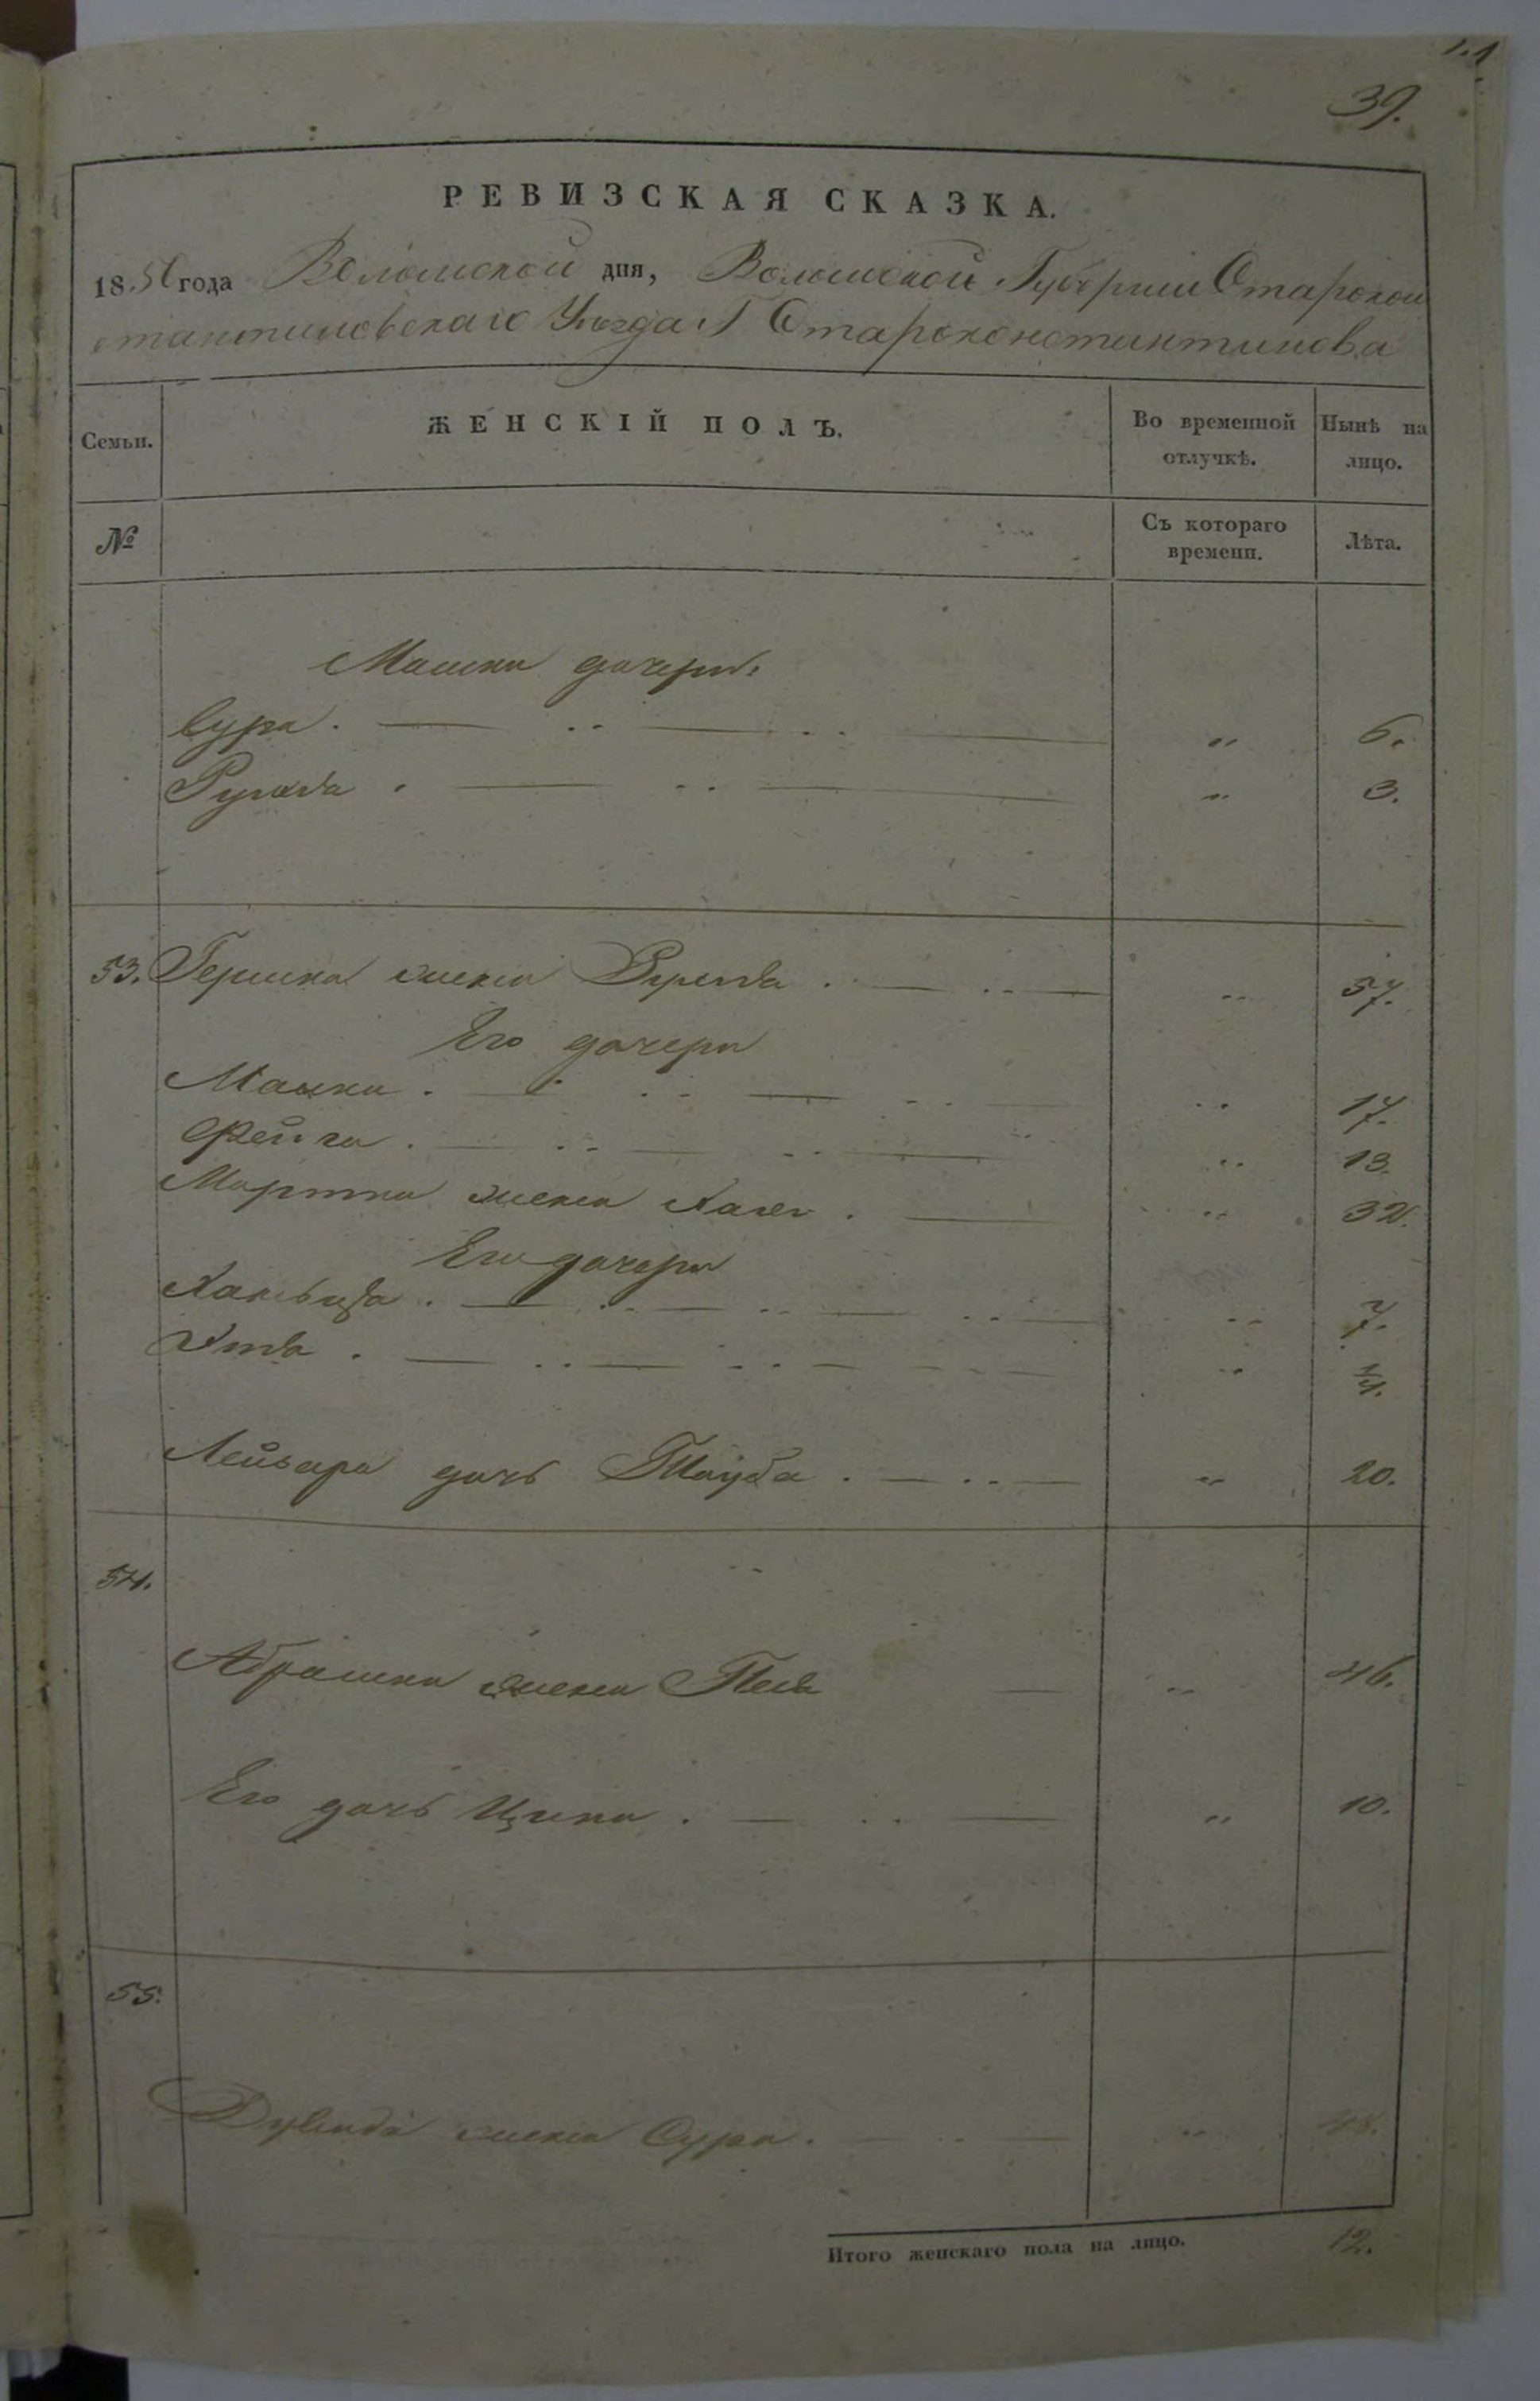 39.
РЕВИЗСКАЯ СКАЗКА.
1850 года дня, Волынской Губернии Старокон
стантиновскаго Уезда Г Староконстантинова
Семьи. ЖЕНСКІЙ ПОЛЪ. Во временной отлучкѣ. Нынѣ на лицо.
№ Съ котораго времени. Лѣта.
Машки дочери.
Сура . — „ 6.
— „ 3.
53. Гершка жена — „ 57.
Его дочери
— „ 17.
Фейга . — „ 13.
жена — „ 32.
Его дочери
— „ 7.
— „ 1/4.
Лейзора дочь Тауба . — „ 20.
54.
Абрашки жена Песя — „ 46.
Его дочь Ципа . — „ 10.
55.
жена Сура . — „ 48.
Итого женскаго пола на лицо. 12.